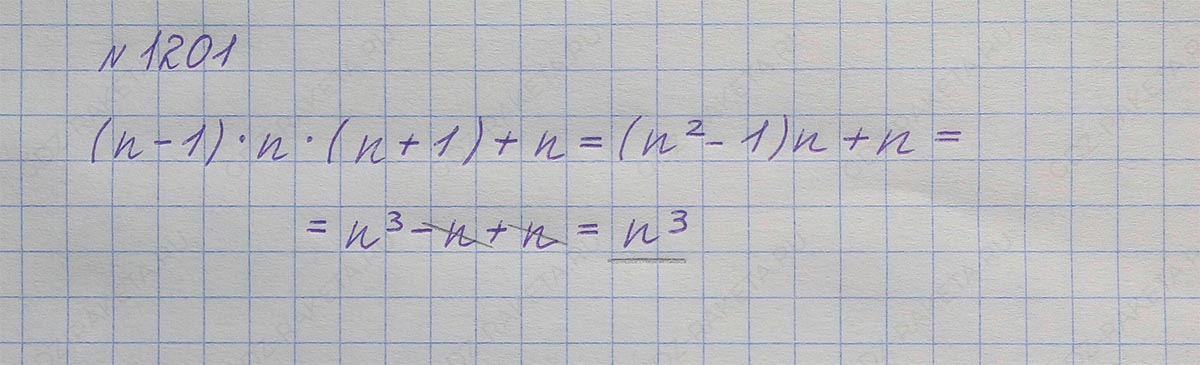 N 1201
(n-1)·n·(n+1)+n=(n²-1)n+n=
=n³-n+n=n³